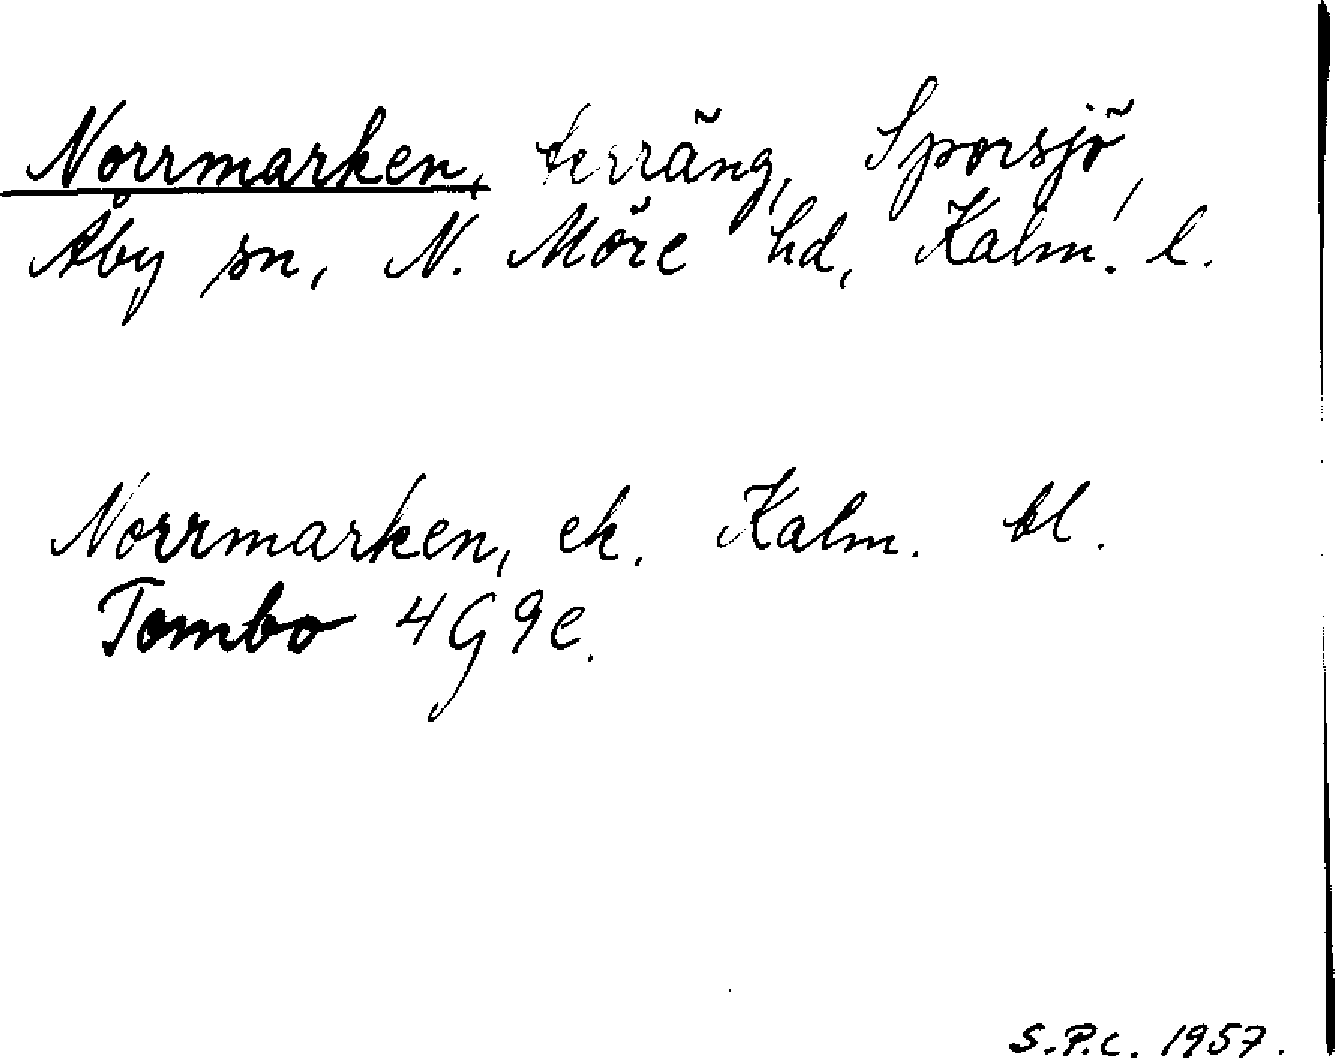 Norrmarken, terräng, Sporsjö,
Åby sn, N. Möre hd, Kalm. l.
Norrmarken, ek. Kalm. bl.
Tombo 4G9e.
S.P.C. 1957.